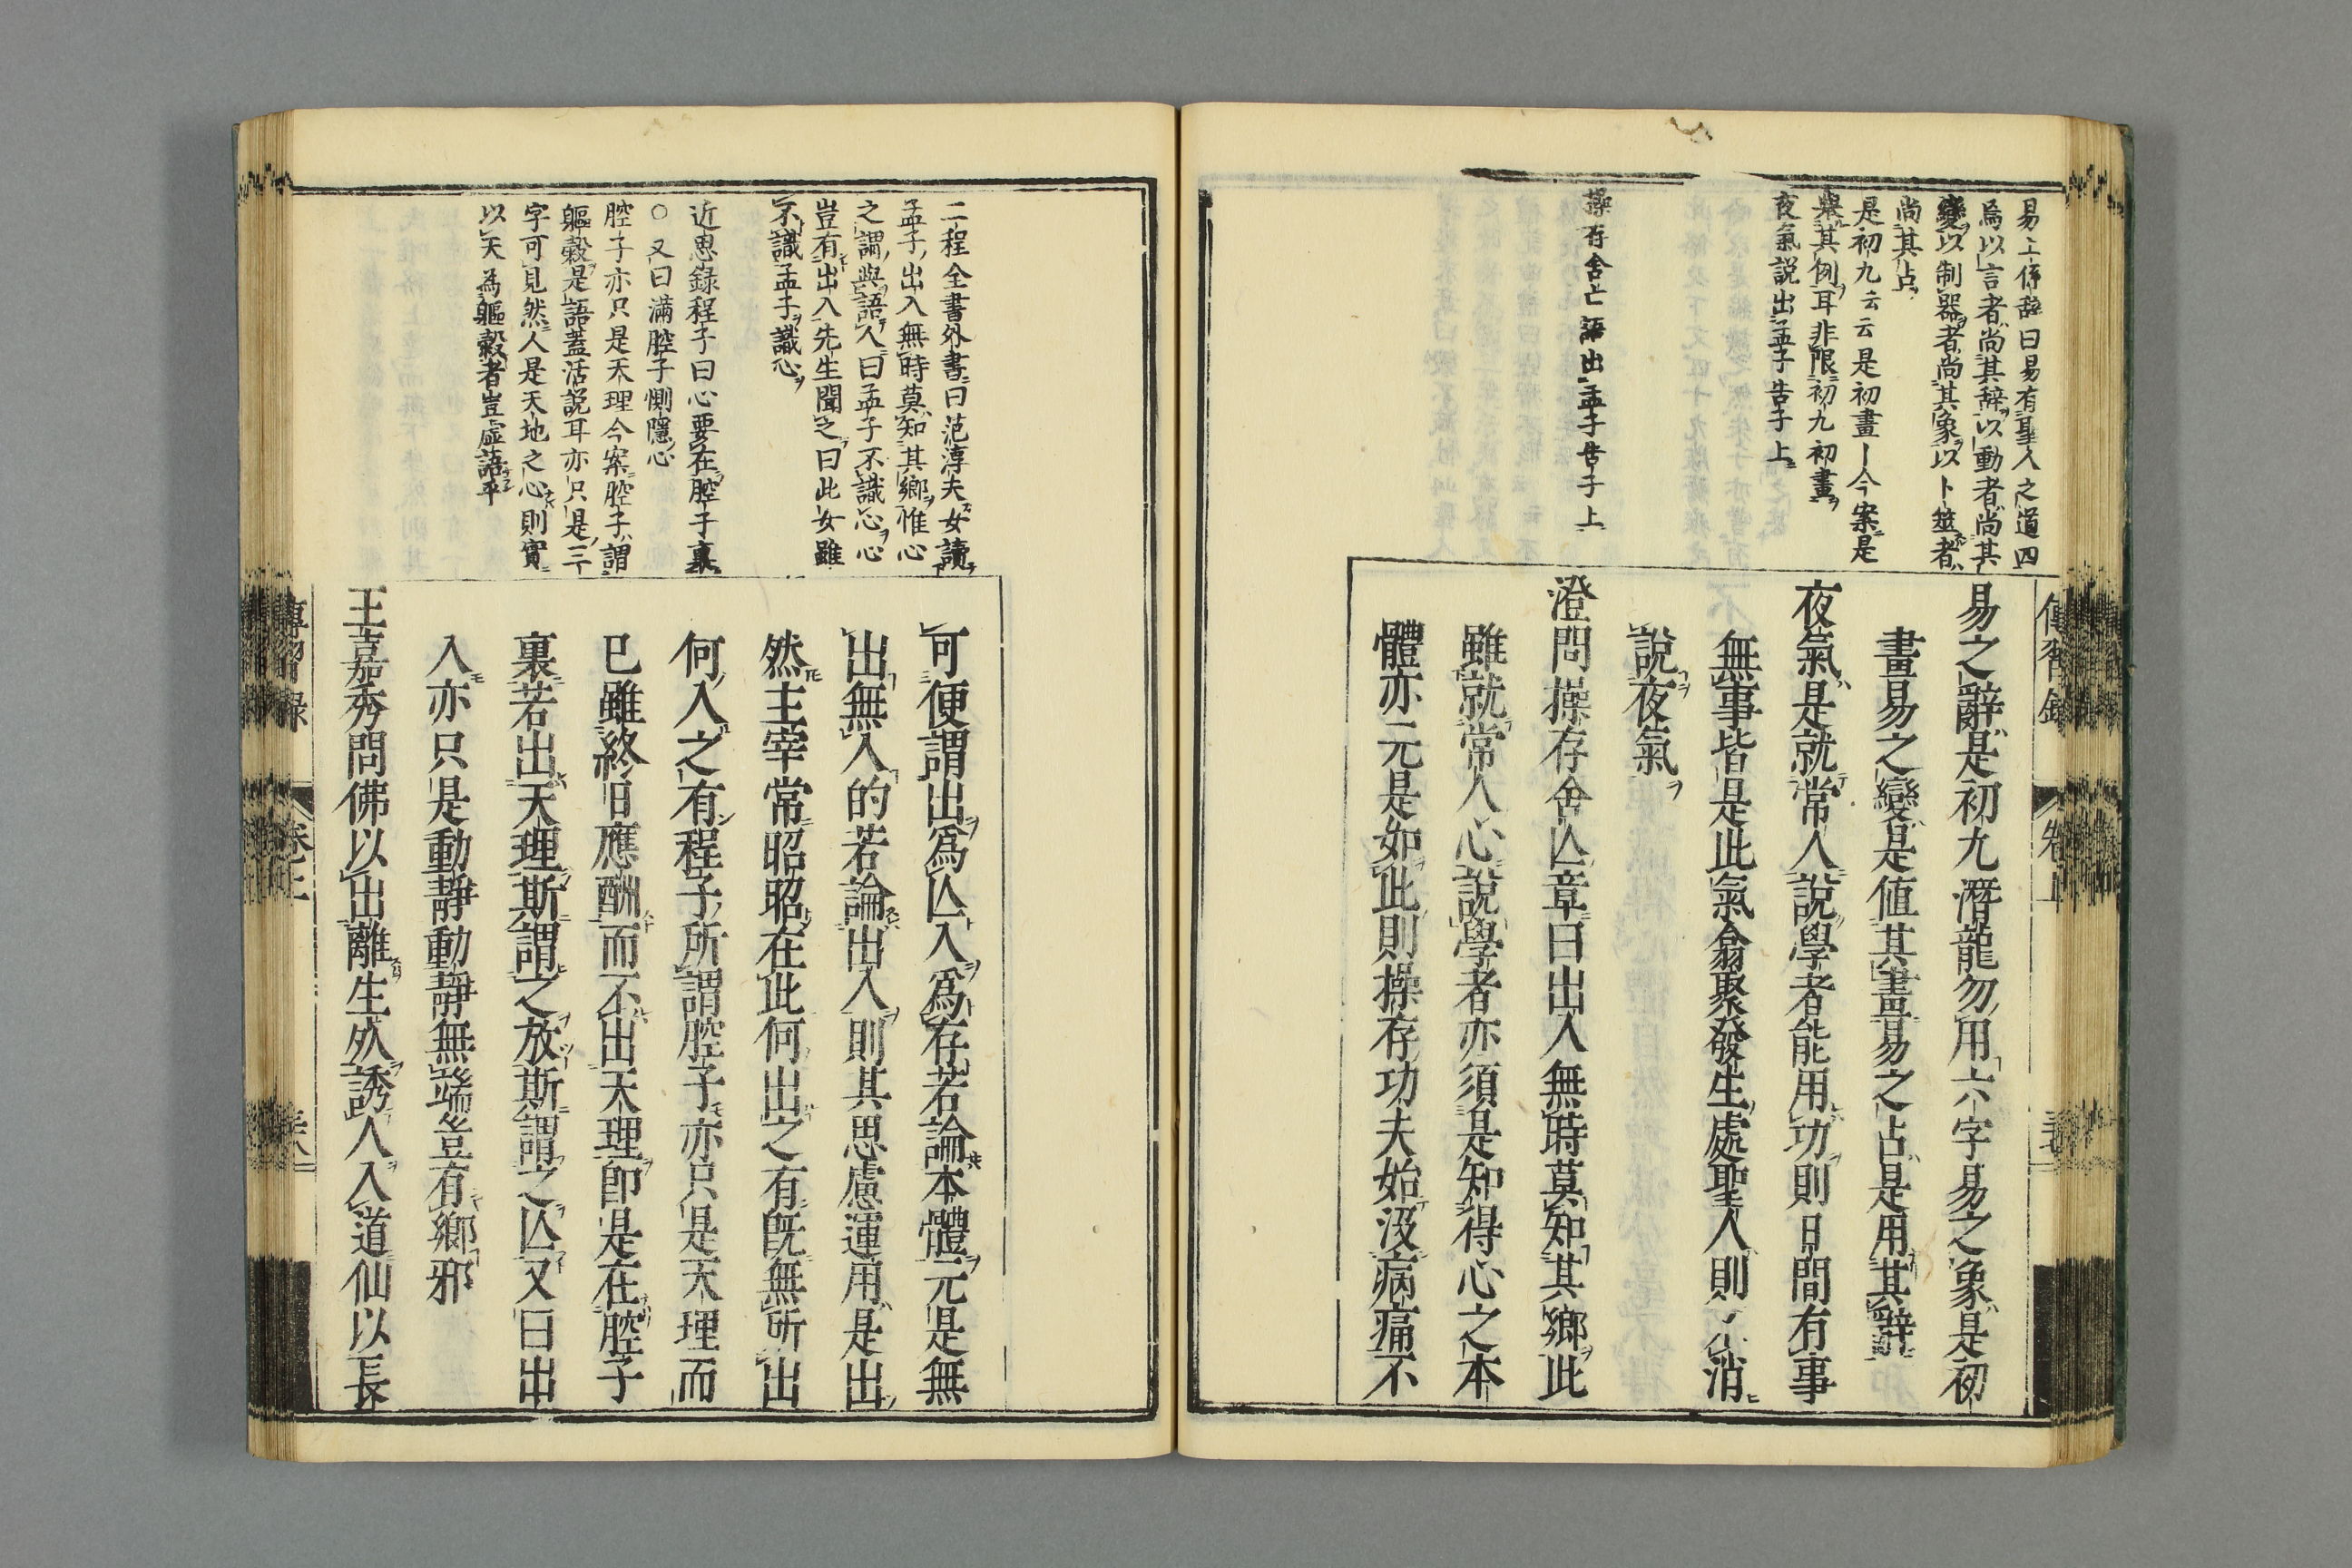 易上係辞曰易有聖人之道四
焉以言者尚其辭以動者尚其
變以制器者尚其象以卜筮者
尚其占
是初九云云是初畫丨今案是
舉其例耳非限初九初畫
夜氣説出孟子告子上
操存舍亡語出孟子告子上
傳習錄
卷上
易之辭是初九潛龍勿用六字易之象是初
畫易之變是値其畫易之占是用其辭
夜氣是就常人說學者能用功則日間有事
無事皆是此氣翕聚發生處聖人則消
說夜氣
澄問操存舍亾章曰出入無時莫知其鄉此
雖就常人心說學者亦須是知得心之本
體亦元是如此則操存功夫始沒病痛不
二程全書外書曰范淳夫女讀
孟子出入無時莫知其鄉惟心
之謂與語人曰孟子不識心心
豈有出入先生聞之曰此女雖
不識孟子識心
近思錄程子曰心要在腔子裏
○又曰滿腔子惻隱心
腔子亦只是天理今案腔子謂
軀殼是語蓋活説耳亦只是三
字可見然人是天地之心則實
以天為軀殼者豈虛語乎
可便謂出爲亾入爲存若論本體元是無
出無入的若論出入則其思慮運用是出
然主宰常昭昭在此何出之有旣無所出
何入之有程子所謂腔子亦只是天理而
已雖終日應酬而不出天理卽是在腔子
裏若出天理斯謂之放斯謂之亾又曰出
入亦只是動靜動靜無端豈有鄉邪
王嘉秀問佛以出離生死誘人入道仙以長
傳習錄
卷上